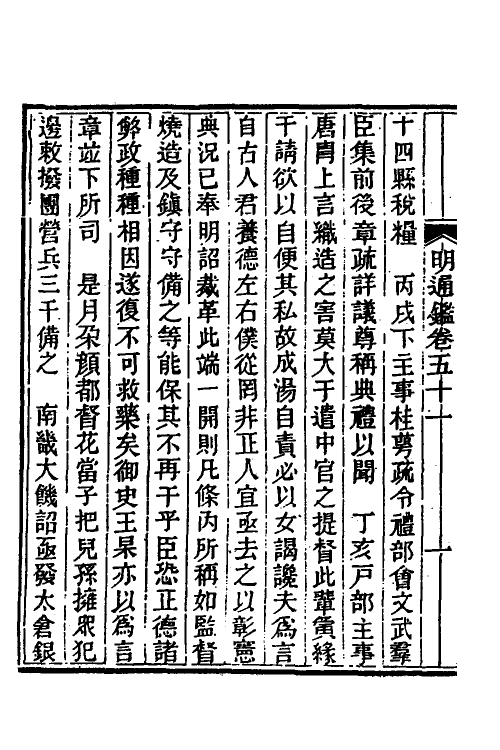 明通鑑卷五十一 一
十四縣稅糧　丙戌下主事桂萼疏令禮部會文武羣
臣集前後章疏詳議尊稱典禮以聞　丁亥戸部主事
唐胄上言織造之害莫大于遣中官之提督此輩夤緣
干請欲以自便其私故成湯自責必以女謁讒夫爲言
自古人君養德左右僕從罔非正人宜亟去之以彰憲
典況已奉明詔裁革此端一開則凡條內所稱如監督
燒造及鎮守守備之等能保其不再干乎臣恐正德諸
弊政種種相因遂復不可救藥矣御史王杲亦以爲言
章並下所司　是月朶顏都督花當子把兒孫擁衆犯
邊敕撥團營兵三千備之　南畿大饑詔亟發太倉銀